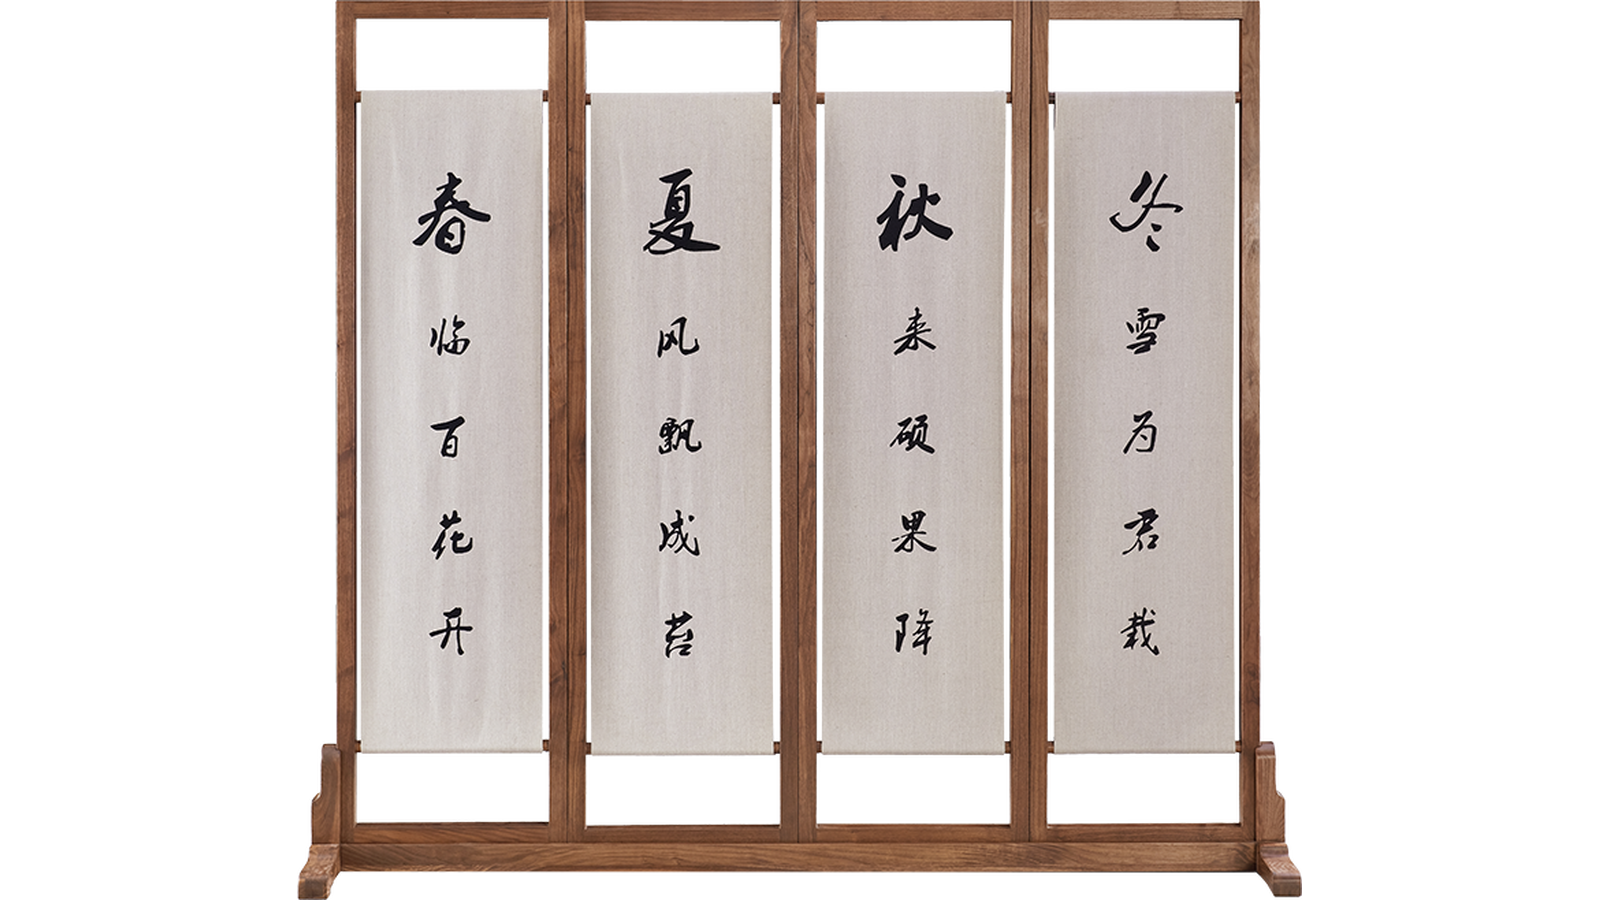 春临百花开
夏风飘成苔
秋来硕果降
冬雪为君栽